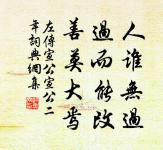 人誰無過
過而能改
善莫大焉
左傳宣公宣公二
年詞典網集